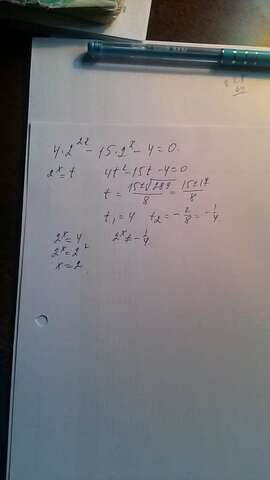 4·2^{2x} - 15·2^x - 4 = 0.
2^x = t   4t² - 15t - 4 = 0
t = \frac{15±\sqrt{289}}{8} = \frac{15±17}{8}
t₁ = 4   t₂ = -\frac{2}{8} = -\frac{1}{4}
2^x = 4   2^x ≠ -\frac{1}{4}
2^x = 2²
x = 2